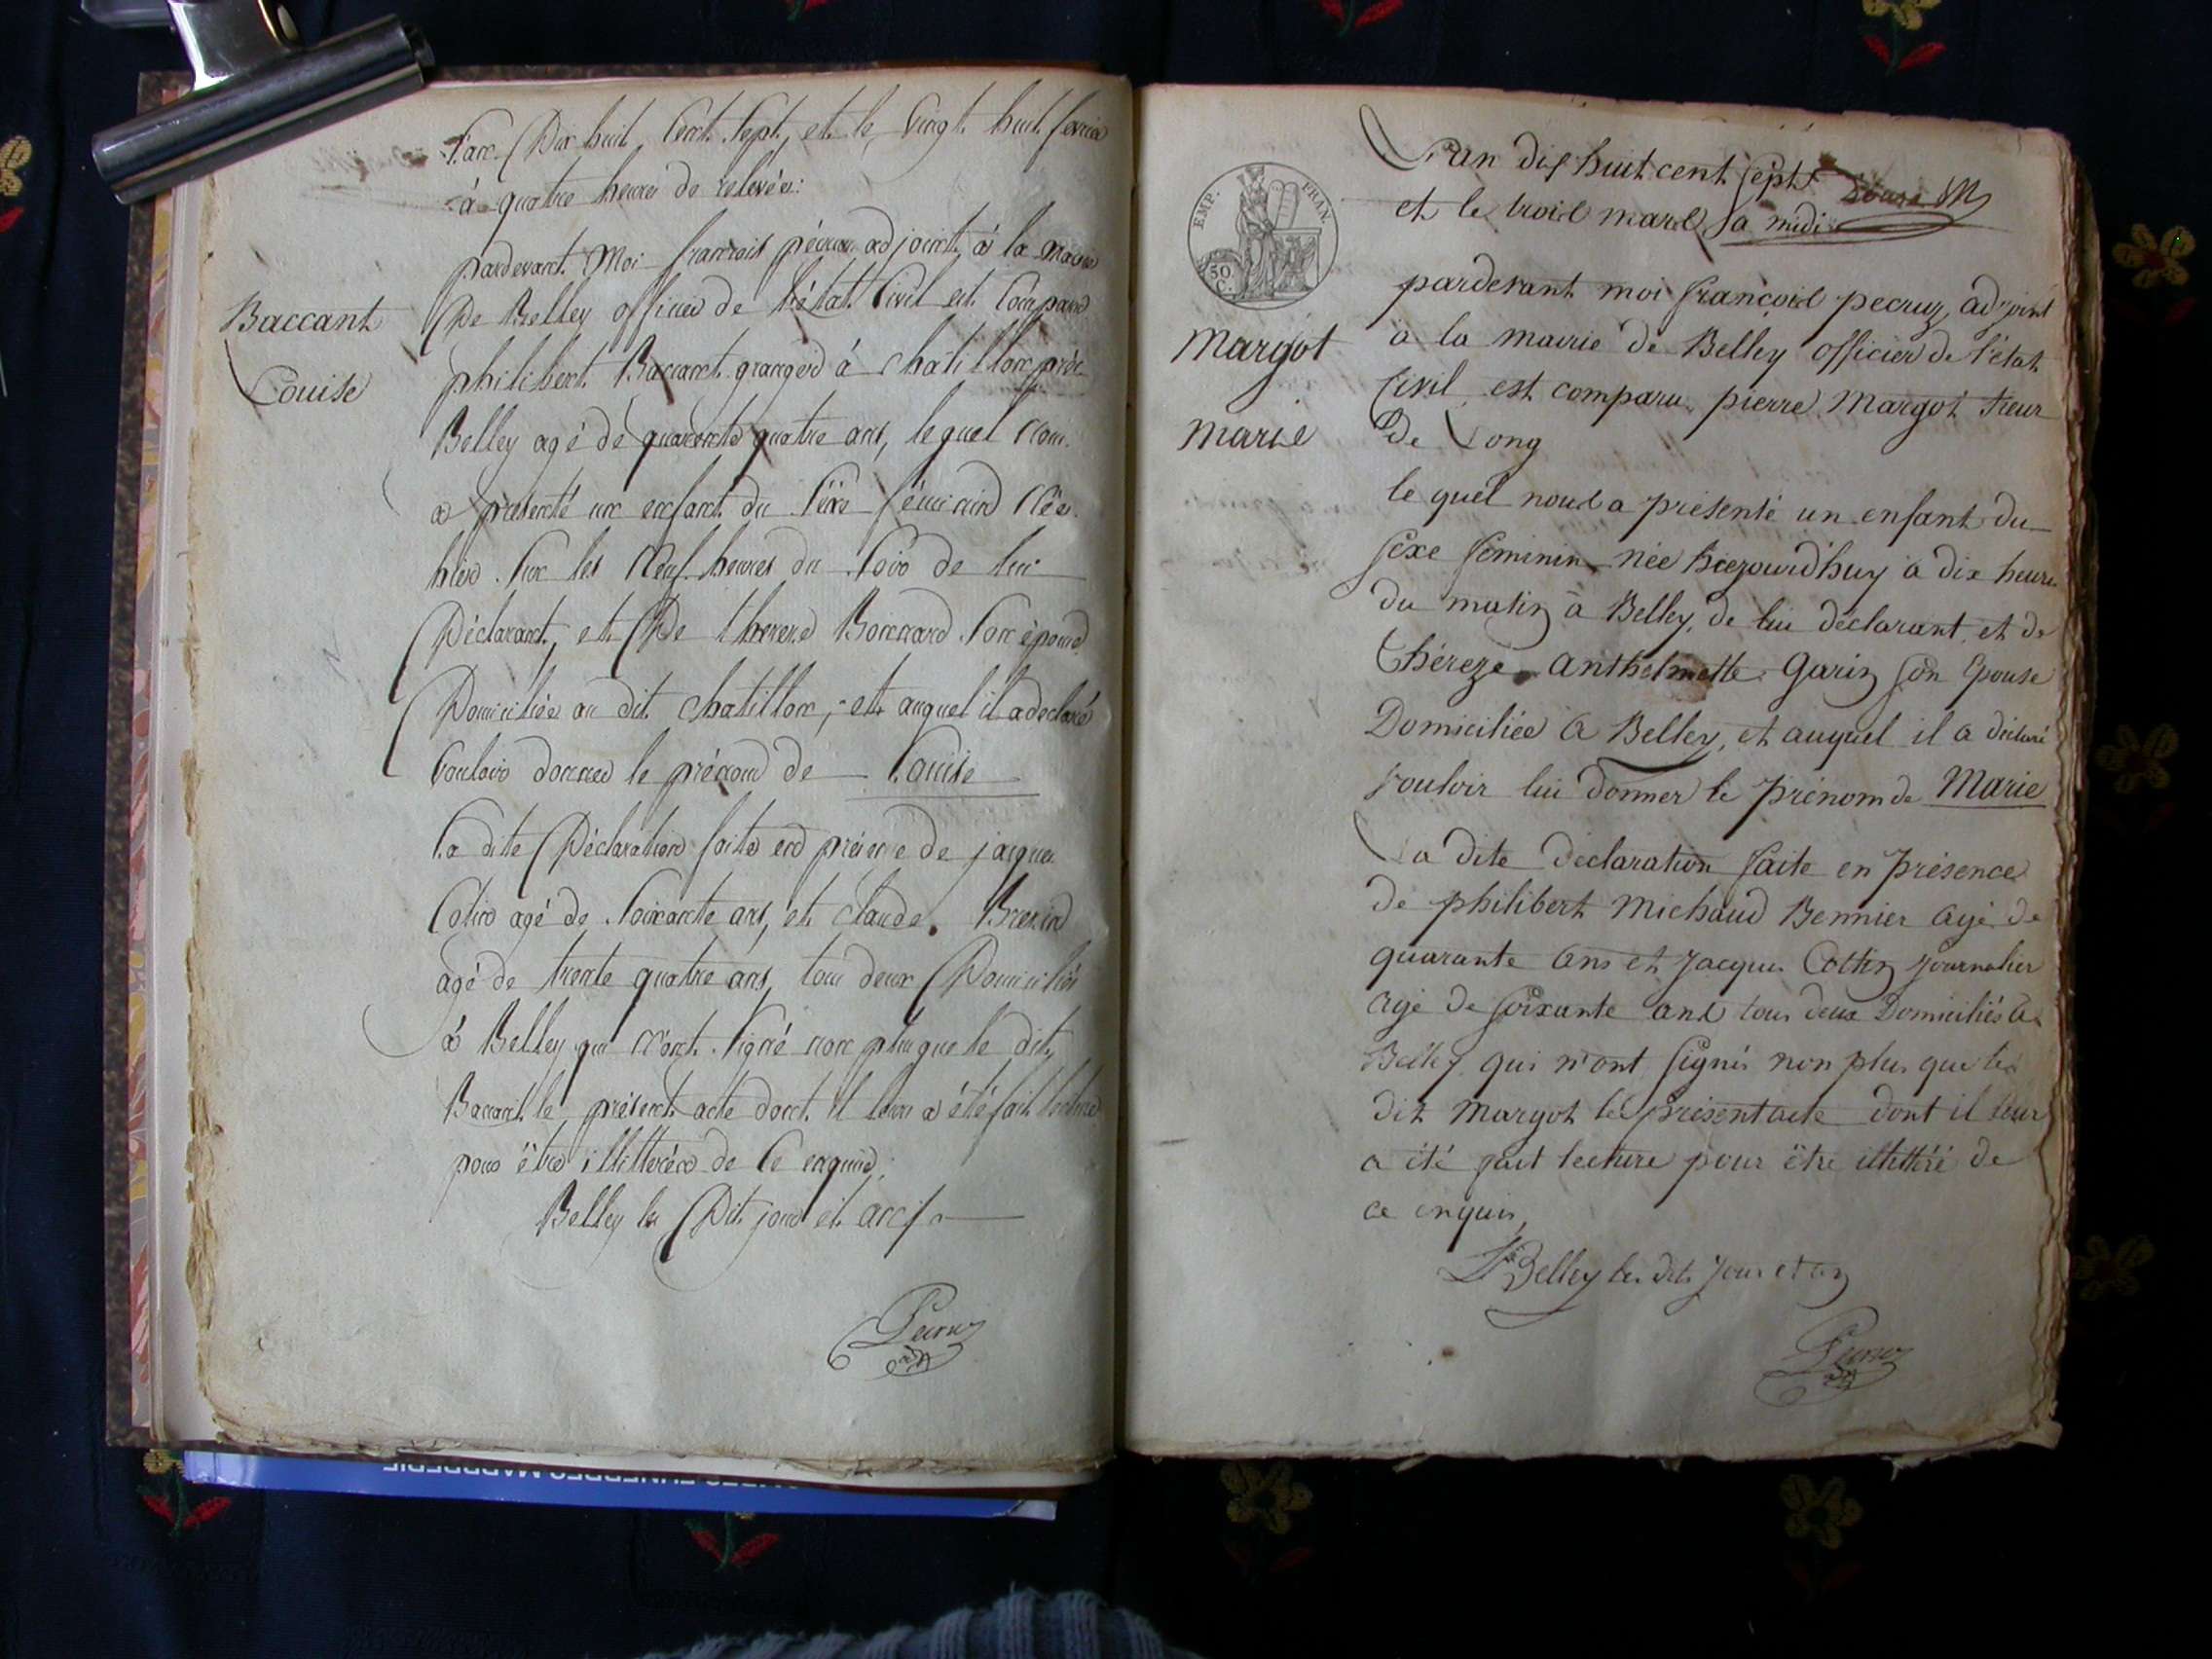 L'an Dix huit Cent Sept, et le Vingt huit fevrier
à quatre heures de relevée:
pardevant Moi francois pécruz adjoint, à la mairie
De Belley officier de L'état Civil est Comparu
Baccant
philibert Baccant granger à Chatillon près
Louise
Belley agé de quarante quatre ans, lequel Nous
a présenté un enfant du Séxe féminin Née
hier Sur les Neuf heures du Soir de lui
Déclarant, et De therese Bonnard Son épouse
Domiciliée au dit Chatillon, et auquel il a declaré
Vouloir donner le prénom de Louise
La dite Déclaration faite en présence de jacques
Cotin agé de Soixante ans, et claude
agé de trente quatre ans, tous deux Domiciliés
à Belley qui N'ont Signé non plus que le dit
Baccant le présent acte dont il leur a été fait lecture
pour être illitterés de Ce enquis,
Belley les Dit jour et an
Pecruz
adjt
EMP. FRAN.
50
C.
L'an dix huit cent sept
et le trois mars à midi
pardevant moi françois pecruz, adjoint
Margot
à la mairie de Belley officier de l'état
Civil est comparu pierre Margot
Marie
De Long
le quel nous a présenté un enfant du
sexe feminin née à dix heures
du matin à Belley, de lui déclarant, et de
Théreze Anthelmette Garin son Epouse
Domiciliée à Belley, et auquel il a déclaré
vouloir lui donner le prénom de Marie
La dite déclaration faite en présence
de philibert Michaud Bennier agé de
quarante ans et Jacques Cottin journalier
agé de soixante ans tous deux Domiciliés à
Belley qui n'ont signés non plus que le
dit Margot le présent acte dont il leur
a été fait lecture pour être illittéré de
ce enquis,
Belley les dits jour et an
Pecruz
adjt